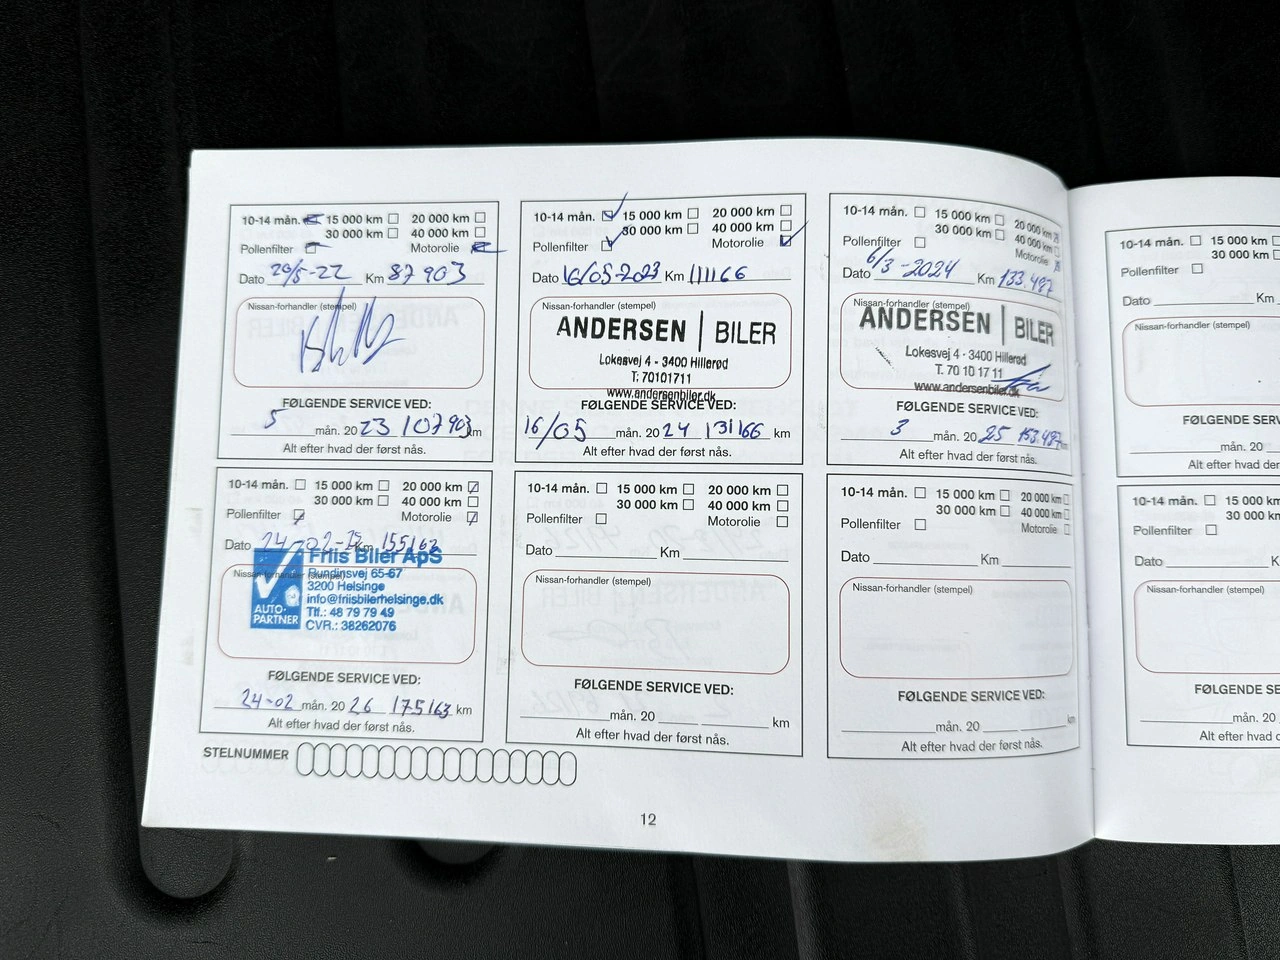 10-14 mån. 15 000 km 20 000 km
30 000 km 40 000 km
Pollenfilter Motorolie
Dato Km 87 903
Nissan-forhandler (stempel)
FØLGENDE SERVICE VED:
5 mån. 2023 107 903 km
Alt efter hvad der først nås.
10-14 mån. 15 000 km 20 000 km
30 000 km 40 000 km
Pollenfilter Motorolie
Dato 16/05-2023 Km 111166
Nissan-forhandler (stempel)
ANDERSEN | BILER
Lokesvej 4 - 3400 Hillerød
T: 70101711
www.andersenbiler.dk
FØLGENDE SERVICE VED:
16/05 mån. 2024 131166 km
Alt efter hvad der først nås.
10-14 mån. 15 000 km 20 000 km
30 000 km 40 000 km
Pollenfilter Motorolie
Dato 6/3-2024 Km 133.497
Nissan-forhandler (stempel)
ANDERSEN | BILER
Lokesvej 4 - 3400 Hillerød
T. 70 10 17 11
www.andersenbiler.dk
FØLGENDE SERVICE VED:
3 mån. 2025 153.497 km
Alt efter hvad der først nås.
10-14 mån. 15 000 km
30 000 km
Pollenfilter
Dato Km
Nissan-forhandler (stempel)
FØLGENDE SERVICE
mån. 20
Alt efter hvad der
10-14 mån. 15 000 km 20 000 km
30 000 km 40 000 km
Pollenfilter Motorolie
Dato 24-02- Km 155163
Nissan-forhandler (stempel)
AUTO-
PARTNER
Friis Biler ApS
Rundinsvej 65-67
3200 Helsinge
info@friisbilerhelsinge.dk
Tlf.: 48 79 79 49
CVR.: 38262076
FØLGENDE SERVICE VED:
24-02 mån. 2026 175163 km
Alt efter hvad der først nås.
10-14 mån. 15 000 km 20 000 km
30 000 km 40 000 km
Pollenfilter Motorolie
Dato Km
Nissan-forhandler (stempel)
FØLGENDE SERVICE VED:
mån. 20 km
Alt efter hvad der først nås.
10-14 mån. 15 000 km 20 000 km
30 000 km 40 000 km
Pollenfilter Motorolie
Dato Km
Nissan-forhandler (stempel)
FØLGENDE SERVICE VED:
mån. 20 km
Alt efter hvad der først nås.
10-14 mån. 15 000 km
30 000 km
Pollenfilter
Dato Km
Nissan-forhandler (stempel)
FØLGENDE SERVICE
mån. 20
Alt efter hvad der
STELNUMMER
12